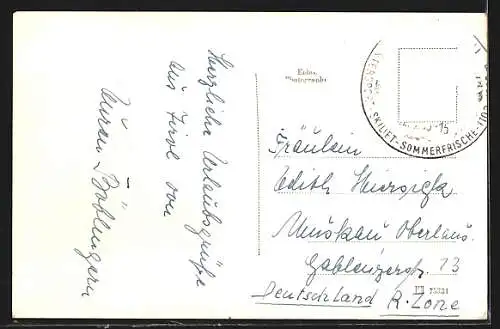 Herzliche Urlaubsgrüße
aus Tirol von
Euren Böblingern
Echte
Photographie
SKILIFT-SOMMERFRISCHE-
Fräulein
Edith
Muskau Oberlaus.
Gablenzerstr. 13
Deutschland R. Zone